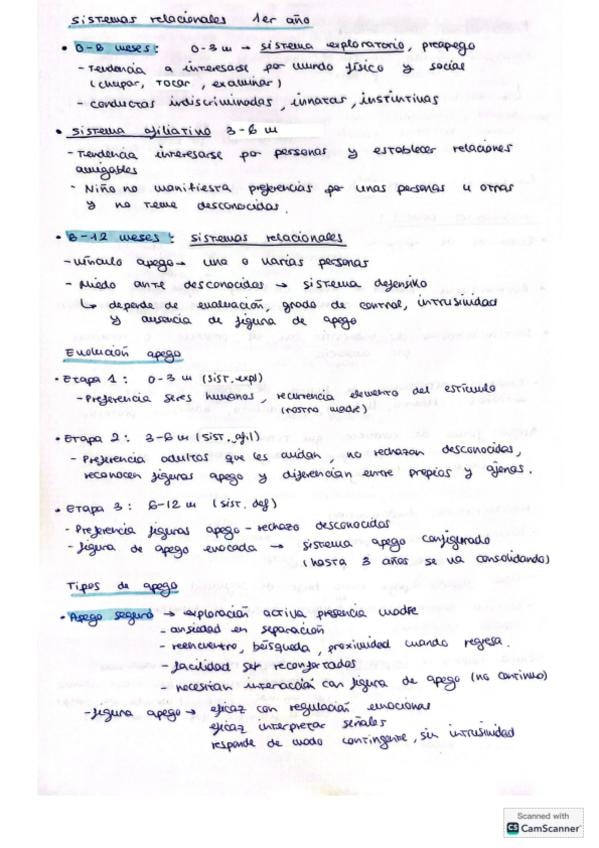 Sistemas relacionales 1er año
• 0-6 meses: 0-3 m → sistema exploratorio, preapego
- Tendencia a interesarse por mundo físico y social
(chupar, tocar, examinar)
- conductas indiscriminadas, innatas, instintivas
• Sistema afiliativo 3-6 m
- Tendencia interesarse por personas y establecer relaciones
amigables
- Niño no manifiesta preferencias por unas personas u otras
y no teme desconocidas.
• 6-12 meses: sistemas relacionales
- Vínculo apego → una o varias personas
- Miedo ante desconocidas → sistema defensivo
↳ depende de evaluación, grado de control, intrusividad
y ausencia de figura de apego
Evolución apego
• Etapa 1: 0-3 m (sist. expl)
- Preferencia seres humanos, recurrencia elemento del estímulo
(rostro madre)
• Etapa 2: 3-6 m (sist. afil)
- Preferencia adultos que les cuidan, no rechazan desconocidas,
reconocen figuras apego y diferencian entre propios y ajenos.
• Etapa 3: 6-12 m (sist. def)
- Preferencia figuras apego - rechazo desconocidas
- figura de apego evocada → sistema apego configurado
(hasta 3 años se va consolidando)
Tipos de apego
• Apego seguro → exploración activa presencia madre
- ansiedad en separación
- reencuentro, búsqueda, proximidad cuando regresa.
- facilidad ser reconfortadas
- necesitan interacción con figura de apego (no continuo)
- figura apego → eficaz con regulación emocional
eficaz interpretar señales
responde de modo contingente, sin intrusividad
Scanned with
CS CamScanner